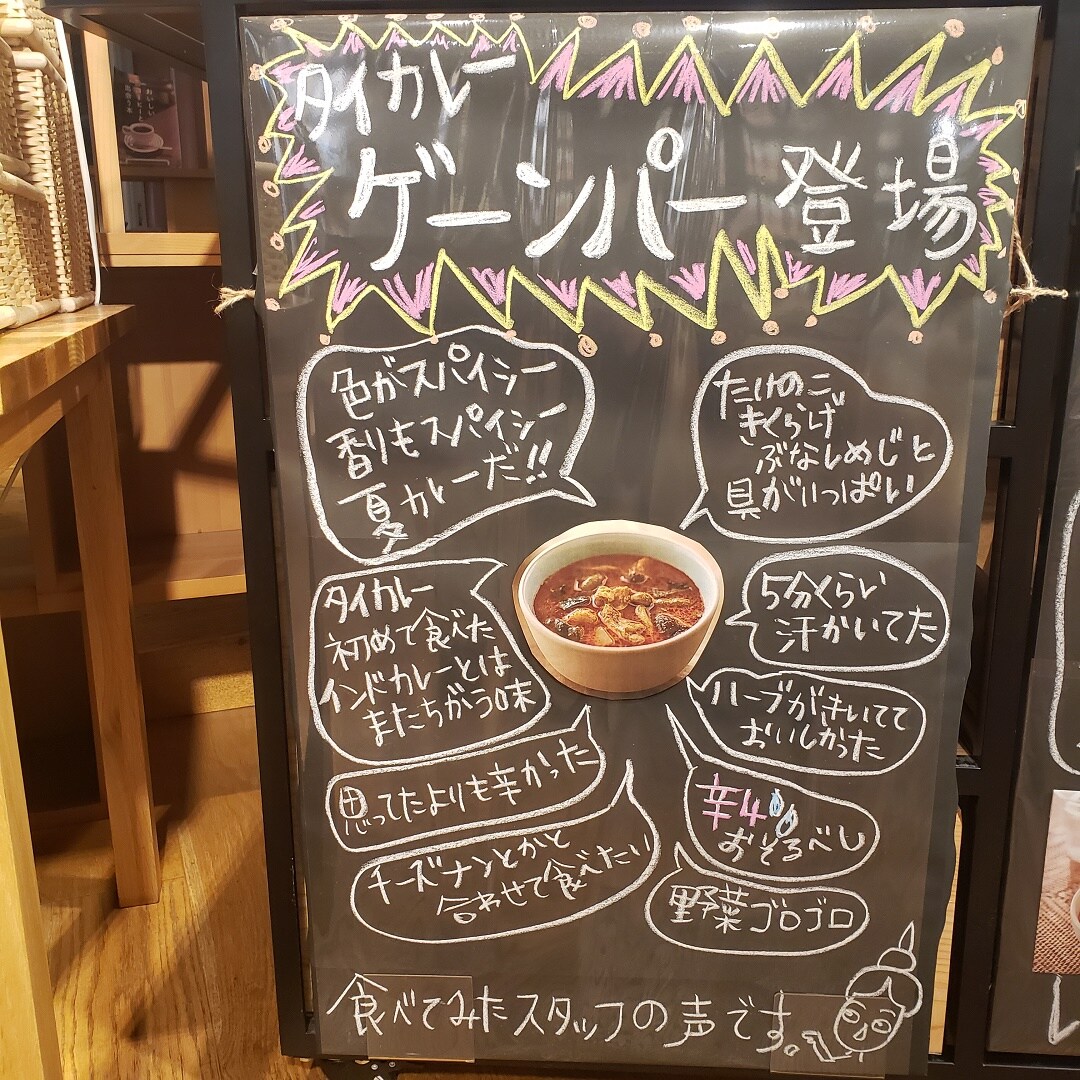 タイカレー
ゲーンパー登場
色がスパイシー
香りもスパイシー
夏カレーだ!!
たけのこ
きくらげ
ぶなしめじと
具がいっぱい
タイカレー
初めて食べた
インドカレーとは
またちがう味
5分くらい
汗かいてた
ハーブがきいてて
おいしかった
思ってたよりも辛かった
辛4
おそるべし
チーズナンとかと
合わせて食べたい
野菜ゴロゴロ
食べてみたスタッフの声です。